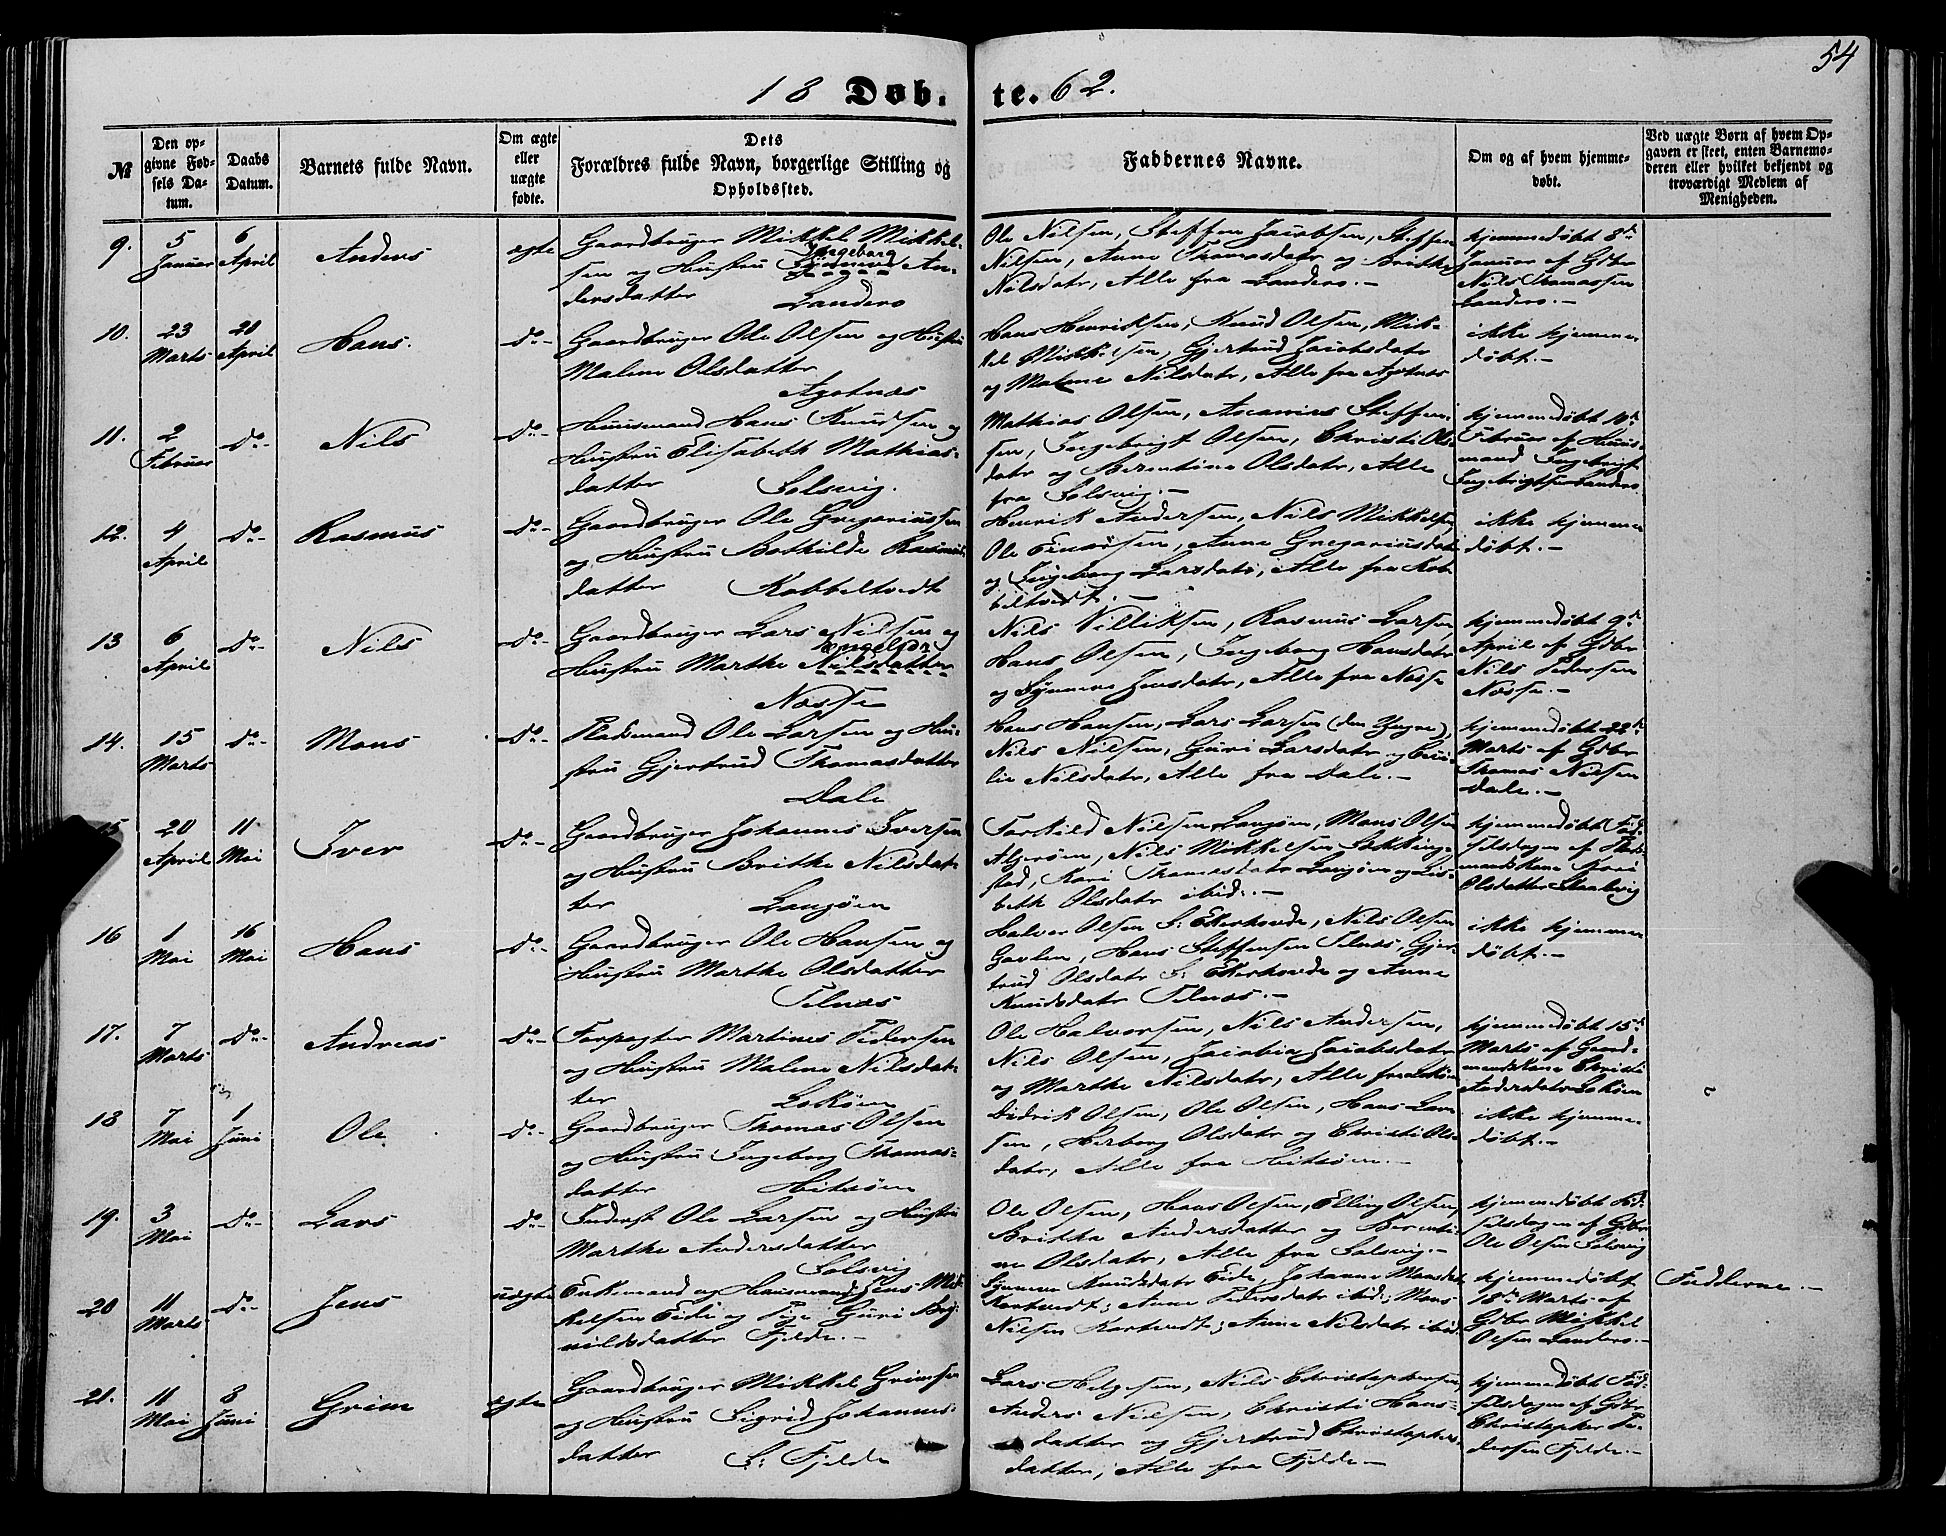 54
18 Døb. te. 62.
№
Den opgivne Fødsels Datum.
Daabs Datum.
Barnets fulde Navn.
Om ægte eller uægte fødte.
Dets
Forældres fulde Navn, borgerlige Stilling og
Opholdssted.
Faddernes Navne.
Om og af hvem hjemmedøbt.
Ved uægte Børn af hvem Opgaven er skeet, enten Barnemoderen eller hvilket bekjendt og troværdigt Medlem af Menigheden.
9. 5 Januar 6 April Anders ægte
Gaardbruger Mikkel Mikkel-
sen og Hustru Ingeborg An-
dersdatter Landero
Ole Nilsen, Steffen Jacobsen, Steffen
Nilsen, Anne Thomasdatr og Brithe
Nilsdatr, Alle fra Landero.-
hjemmedøbt 8de
Januar af Gdbr
Nils Thomassen
Landero.-
10. 23 Marts 20 April Hans. Do-
Gaardbruger Ole Olsen og Hustru
Malene Olsdatter
Agotnæs
Hans Henriksen, Knud Olsen, Mik-
kel Mikkelsen, Gjertrud Jacobsdatr
og Malene Nilsdatr, Alle fra Agotnæs
ikke hjemme
døbt.-
11. 2 Februar Do- Nils Do-
Huusmand Hans Knudsen og
Hustru Elisabeth Mathias-
datter Solsvig.
Mathias Olsen, Ascanius Steffen-
sen, Ingebrigt Olsen, Christi Ols-
datr og Berentine Olsdatr, Alle
fra Solsvig.-
hjemmedøbt 10de
Februar af Huus-
mand Ingebrigt
Ingebrigtsen Landero
12. 4 April Do- Rasmus Do-
Gaardbruger Ole Gregoriussen
og Hustru Bothilde Rasmus-
datter Kobbeltvedt
Henrik Andersen, Nils Mikkelsen
Ole Einarsen, Anne Gregoriusdatr
og Ingeborg Larsdatr, Alle fra Kob-
beltvedt.-
ikke hjemme
døbt.-
13 6 April Do- Nils Do-
Gaardbruger Lars Nilsen og
Hustru Marthe Nilsdatter
Nosse
Nils Villiksen, Rasmus Larsen,
Hans Olsen, Ingeborg Hansdatr
og Synneve Jensdatr, Alle fra Nosse
hjemmedøbt 9de
April af Gdbr
Nils Pedersen
Nosse.-
14. 15 Marts Do- Mons Do-
Pladsmand Ole Larsen og Hu-
stru Gjertrud Thomasdatter
Dale
Hans Hansen, Lars Larsen (den Yngre),
Nils Nilsen, Guri Larsdatr og
Nilsdatr, Alle fra Dale.-
hjemmedøbt 22de
Marts af Gdbr
Thomas Nilsen
Dale.-
15 20 April 11 Mai Iver Do-
Gaardbruger Johannes Iversen
og Hustru Brithe Nilsdat-
ter Langøen
Torkild Nilsen Langøen, Mons Olsen
Algerøen, Nils Mikkelsen Sekking-
stad, Kari Thomasdatr Langøen og Lis-
beth Olsdatr ibid.-
hjemmedøbt Fød-
selsdagen af Huus-
mandskone Kari
Olsdatter Skaalvig
16 1 Mai 16 Mai Hans Do-
Gaardbruger Ole Hansen og
Hustru Marthe Olsdatter
Telnæs
Halvor Olsen S: Ekerhovde, Nils Olsen
Gavlen, Hans Steffensen Telnæs, Gjer-
trud Olsdatr S: Ekerhovde og Anne
Knudsdatr Telnæs.-
ikke hjemme
døbt.-
17. 7 Marts Do- Andreas Do-
Forpagter Martinus Pedersen
og Hustru Malene Nilsdat-
ter Lokøen
Ole Halvorsen, Nils Andersen,
Nils Olsen, Jacobia Jacobsdatr
og Marthe Nilsdatr, Alle fra Lokøen
hjemmedøbt 15de
Marts af Gaard-
mandskone Christi
Andersdatr Lokøen
18 7 Mai 1 Juni Ole Do-
Gaardbruger Thomas Olsen
og Hustru Ingeborg Thomas-
datter Hitsøen
Didrik Olsen, Ole Olsen, Hans Lar-
sen, Herborg Olsdatr og Christi Ols-
datr, Alle fra Hitsøen.-
ikke hjemme-
døbt.-
19. 3 Mai Do- Lars Do-
Inderst Ole Larsen og Hustru
Marthe Andersdatter
Solsvig
Ole Olsen, Hans Olsen, Elling Olsen,
Brithe Andersdatter og Berenti-
ne Olsdatr, Alle fra Solsvig.-
hjemmedøbt Fød-
selsdagen af Gdbr
Ole Olsen Solsvig
20 11 Marts Do- Jens uægte
Enkemand og Huusmand Jens Mik-
kelsen Eide og Pige Guri Bry-
nildsdatter Fjelde.-
Synneve Knudsdatr Eide, Johanne Monsdatr
Kortvedt; Anne Pedersdatr ibid; Mons
Nilsen Kortvedt; Anne Nilsdatr ibid.
hjemmedøbt
18de Marts af
Gdbr Mikkel
Olsen Landero.-
Fadderne.-
21. 11 Mai 8 Juni Grim ægte
Gaardbruger Mikkel Grimsen
og Hustru Sigrid Johannes-
datter S: Fjelde
Lars Helgesen, Nils Christophersen,
Anders Nilsen, Christi Hans-
datter og Gjertrud Christophers-
datter, Alle fra Fjelde.-
hjemmedøbt Fød-
selsdagen af Gdbr
Christopher Pe-
dersen Fjelde.-